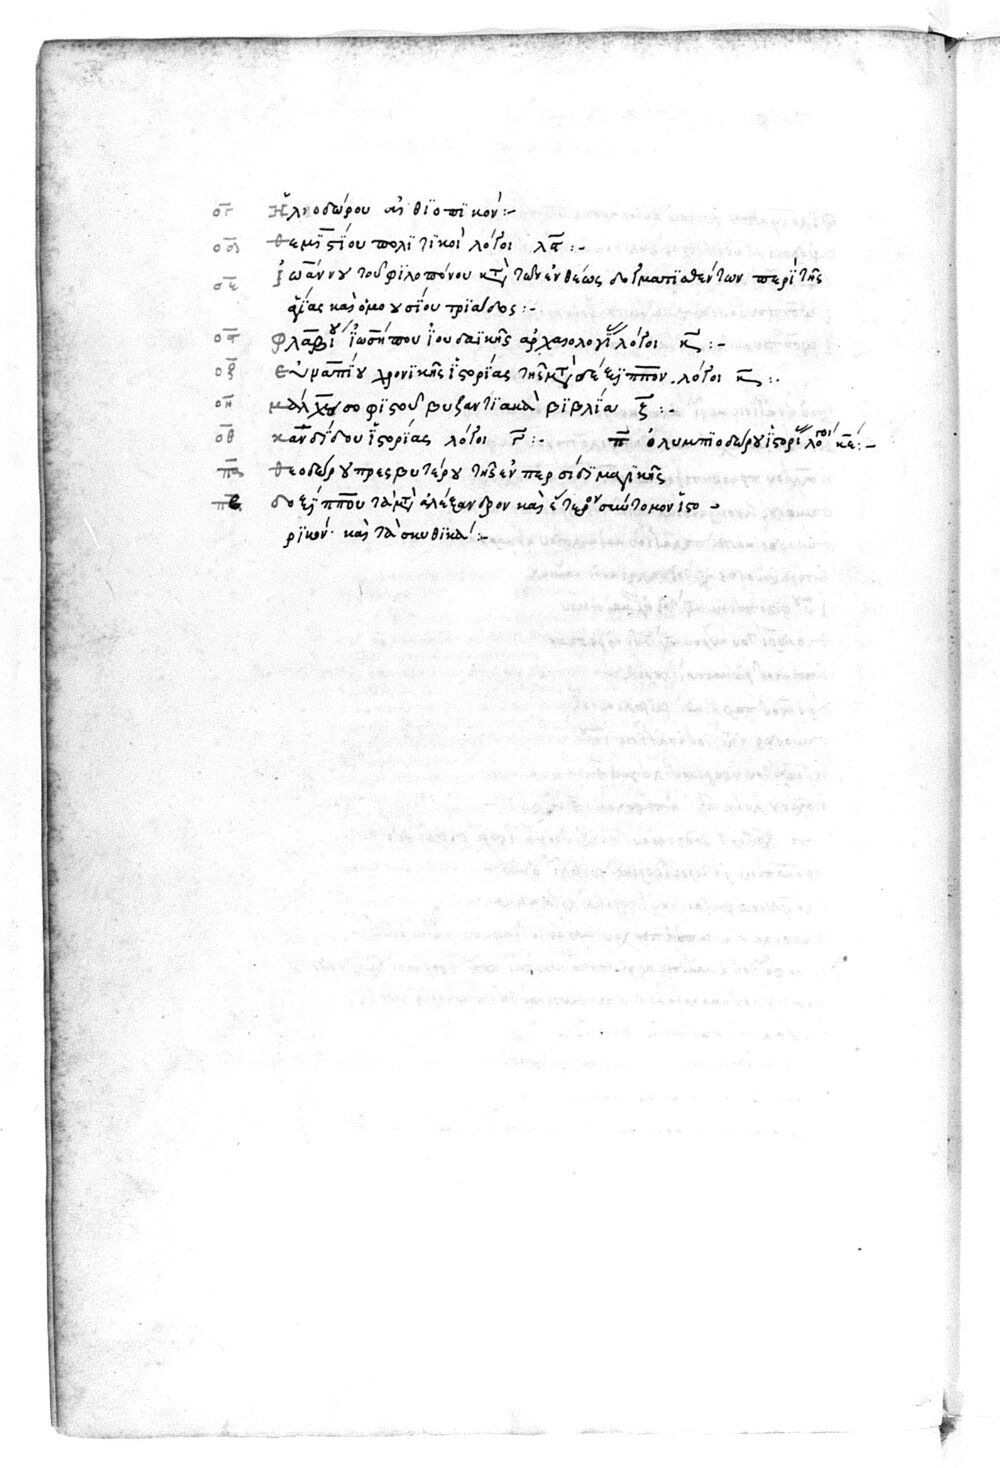 ογ Ἡλιοδώρου αἰθϊοπϊκόν:-
οδ θεμϊστΐου πολϊτϊκοὶ λόγοι λς:-
οε Ἰωάννου τοῦ φϊλοπόνου κατὰ τῶν ἐνθέως δογματϊσθέντων περὶ τῆς
ἁγΐας καὶ ὁμοουσΐου τριάδος:-
ος Φλαβΐου ἰωσήπου ἰουδαϊκῆς ἀρχαιολογΐας λόγοι κ:-
οζ Εὐναπΐου χρονϊκῆς ἱστορίας τῆς μετὰ δέξϊππον. λόγοι κ:-
οη μάλχου σοφϊστοῦ βυζαντϊακὰ βϊβλΐα ξ:-
οθ κανδΐδου ἱστορίας λόγοι γ:- π ὀλυμπϊοδώρου ἱστορικοὶ λόγοι κε:-
πα θεοδώρου πρεσβυτέρου τῆς ἐν περσΐδϊ μαγϊκῆς
πβ δεξΐππου τὰ μετὰ ἀλέξανδρον καὶ ἕτερον σύντομον ἱστο-
ρϊκόν· καὶ τὰ σκυθϊκά:-